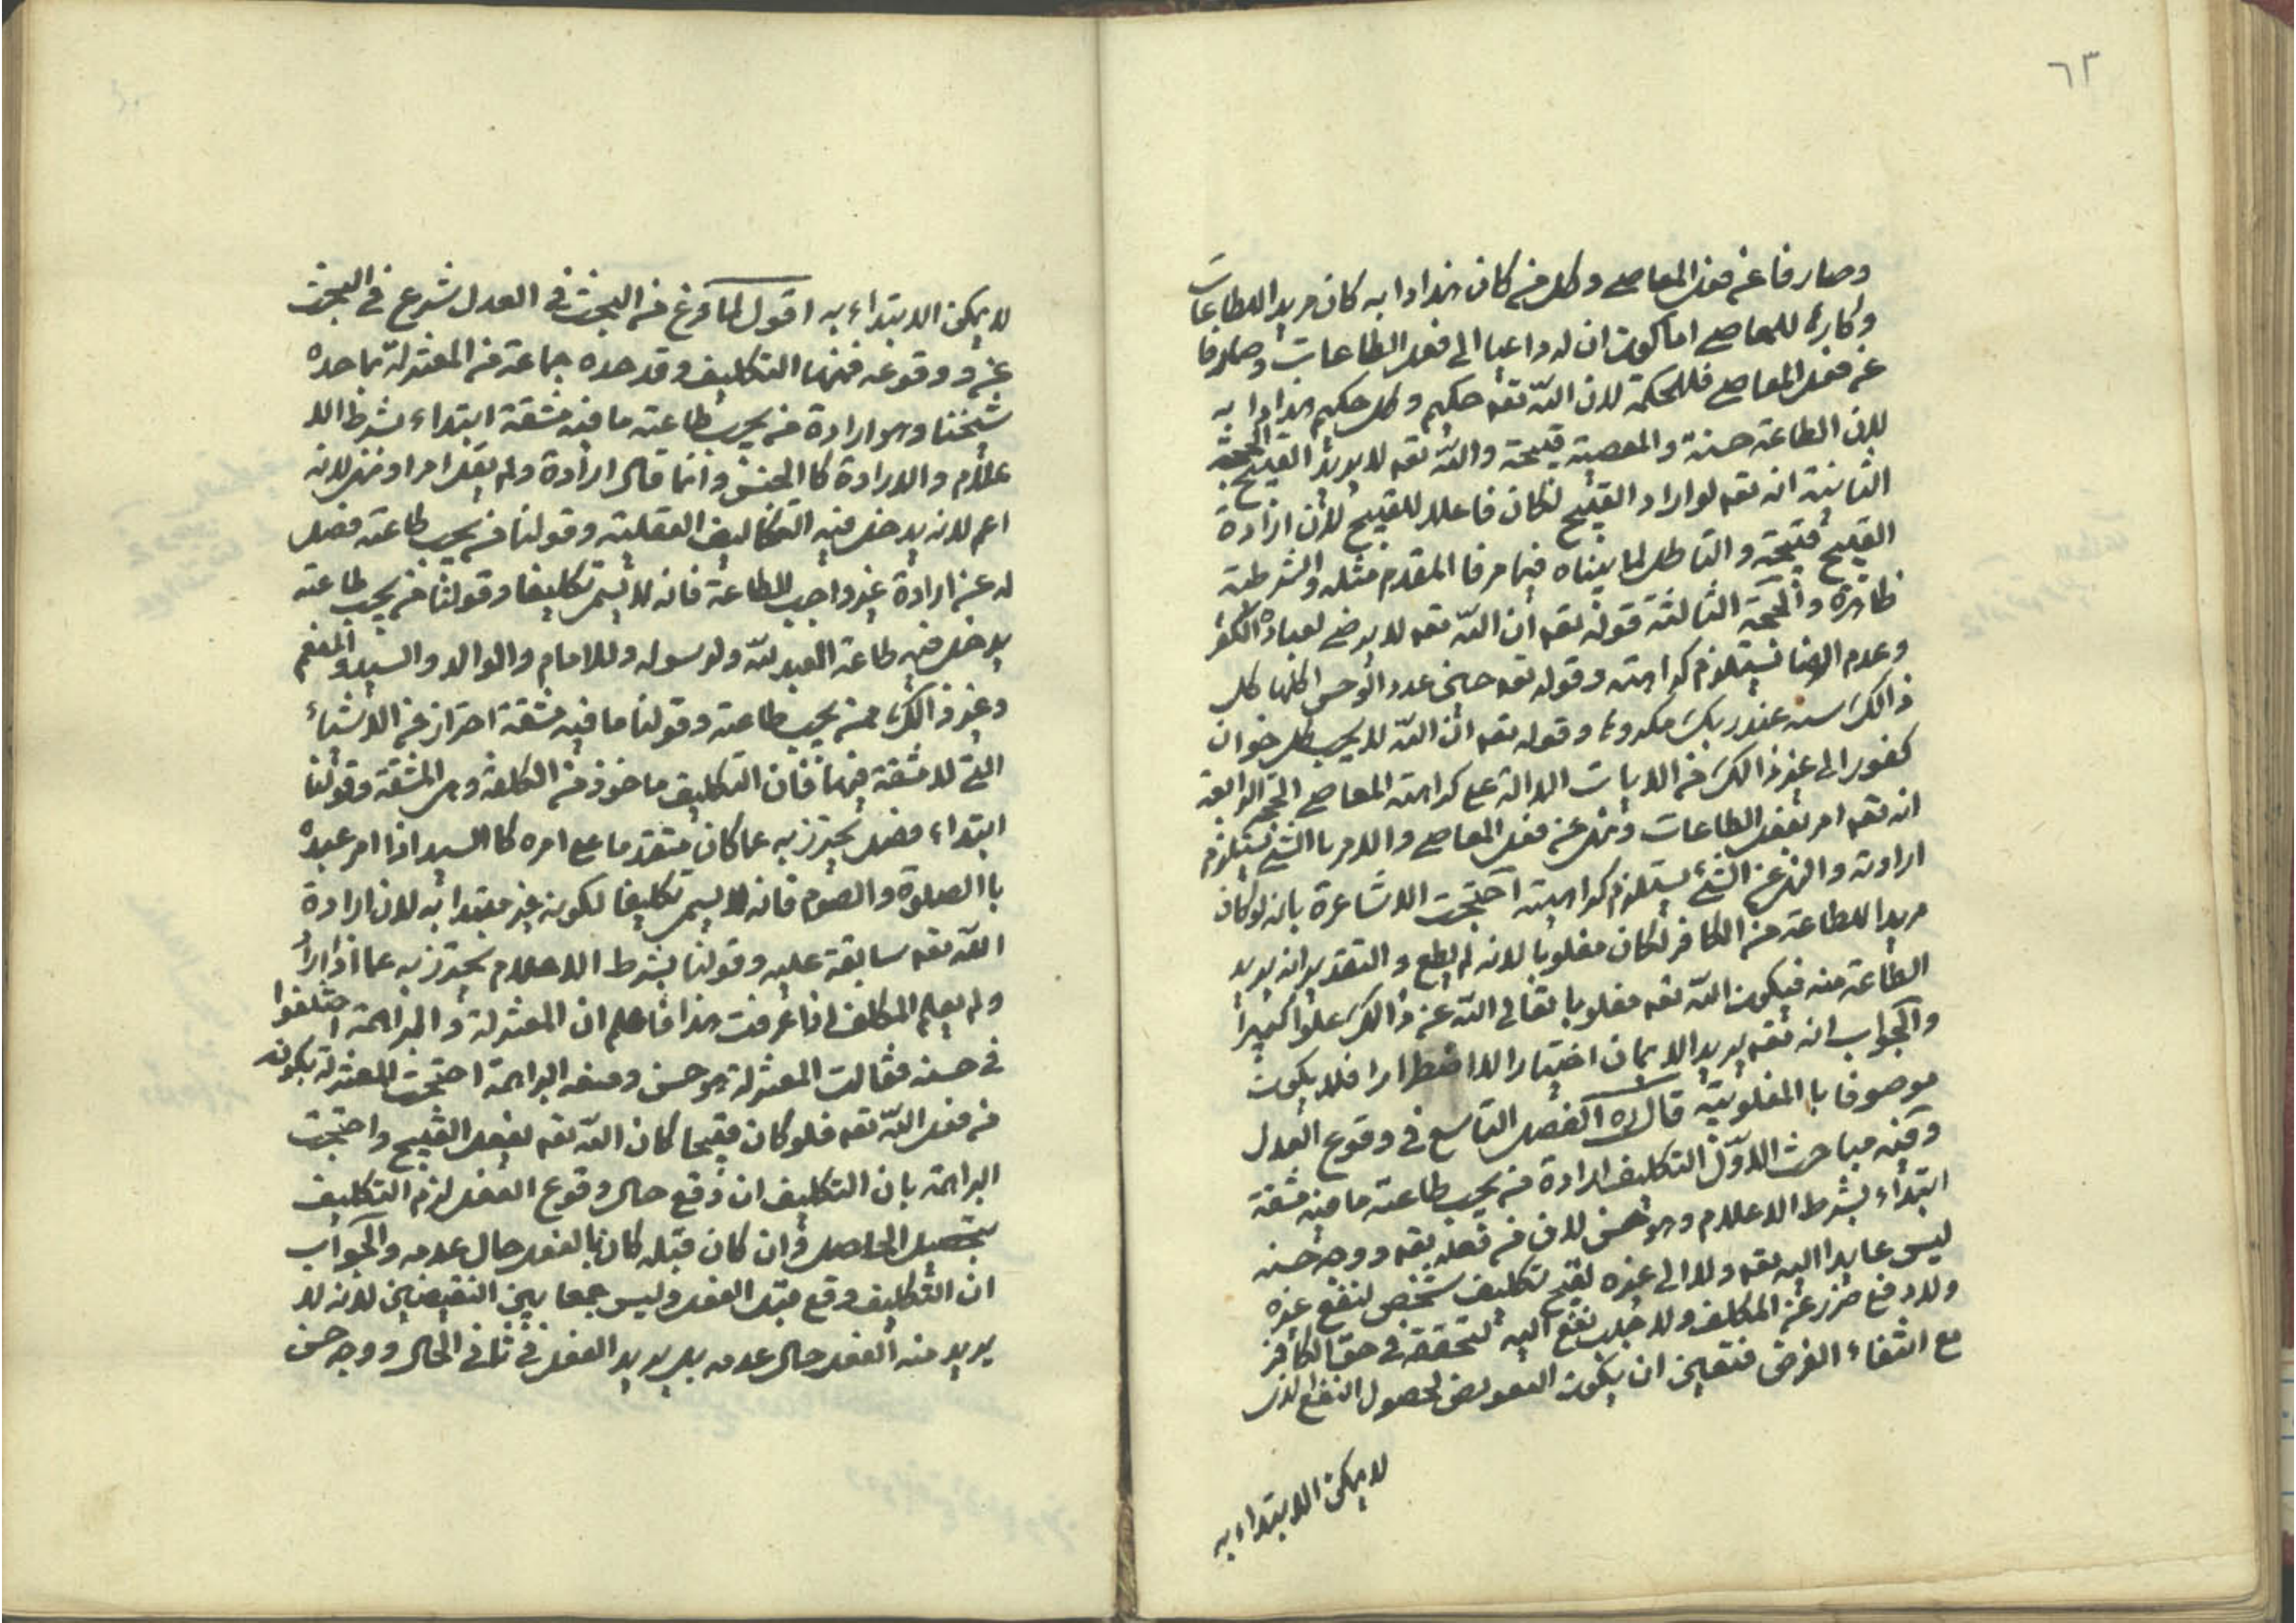 ٦٣
وصارفا عن فعل المعاصي وكل من كان هذا دابه كان مريدا للطاعات
وكارها للمعاصي اما كون ان له داعيا الى فعل الطاعات وصارفا
عن فعل المعاصي فللحكمة لان الله تعه حكيم وكل حكيم هذا دابه
لان الطاعة حسنة والمعصية قبيحة والله تعه لا يريد القبيح الحجة
الثانية انه تعه لو اراد القبيح لكان فاعلا للقبيح لان ارادة
القبيح قبيحة والتاطل لما بيناه فيما مر فا المقدم مثله والشرطية
ظاهرة والحجة الثالثة قوله تعه ان الله تعه لا يرضى لعباده الكفر
وعدم الرضا يستلزم كراهته وقوله تعه حتى عدد الوحس اكلها كل
ذالك سيئه عند ربك مكروها وقوله تعه ان الله لا يحب كل خوان
كفور الى غير ذالك من الايات الدالة على كراهته المعاصي الحجة الرابعة
انه تعه امر بفعل الطاعات ونهى عن فعل المعاصي والامر باالشئ يستلزم
ارادته والنهي عن الشئ يستلزم كراهيته احتجت الاشاعرة بانه لو كان
مريدا للطاعة من الكافر لكان مغلوبا لانه لم يطع والتقدير انه يريد
الطاعة منه فيكون الله تعه مغلوبا تعالى الله عن ذالك علوا كبيرا
والجواب انه تعه يريد الايمان اختيارا لا اضطرارا فلا يكون
موصوفا باالمغلوبية قال ره الفصل التاسع في وقوع العدل
وفيه مباحث الاول التكليف ارادة من يجب طاعته ما فيه مشقة
ابتداء بشرط الاعلام وهو حسن لان من فعله تعه ووجه حسنه
ليس عايدا اليه تعه ولا الى غيره لقبح تكليف شخص لنفع غيره
ولا دفع ضرر عن المكلف ولا جلب نفع اليه لتحققه في حق الكافر
مع انتفاء الغرض فتعين ان يكون التعويض لحصول النفع الذى
لا يمكن الابتداء به
لا يمكن الابتداء به اقول لما فرغ من البحث في العدل شرع في البحث
عن ووقوعه فمنها التكليف وقد حده جماعة من المعتزلة بما حده
شيخنا وهو ارادة من يجب طاعته ما فيه مشقة ابتداء بشرط الا
علام والارادة كا الجنس وانما قال ارادة ولم يقل امرا ونهي لانه
اعم لانه يدخل فيه التكاليف العقلية وقولنا من يجب طاعته فصل
له عن ارادة غير واجب الطاعة فانه لا يسمى تكليفا وقولنا من يجب طاعته
يدخل فيه طاعة العبد لله ولرسوله وللامام والوالد والسيد والمنعم
وغير ذالك ممن يجب طاعته وقولنا ما فيه مشقة احتراز من الاشياء
التي لا مشقة فيها فان التكليف ماخوذ من الكلفة وهى المشقة وقولنا
ابتداء فصل يحترز به عما كان متقدما على امره كا السيد اذا امر عبده
باالصلوة والصوم فانه لا يسمى تكليفا لكونه غير مبتدا به لان ارادة
الله تعه سابقة عليه وقولنا بشرط الاعلام يحترز به عما اذا اراد
ولم يعلم المكلف اذا عرفت هذا فاعلم ان المعتزلة والبراهمة اختلفوا
في حسنه فقالت المعتزلة هو حسن ومنعه البراهمة احتجت المعتزلة بكونه
من فعل الله تعه فلو كان قبيحا كان الله تعه يفعل القبيح واحتجت
البراهمة بان التكليف ان وقع حال وقوع الفعل لزم التكليف
بتحصيل الحاصل وان كان قبله كان باالفعل حال عدمه والجواب
ان التكليف وقع قبل الفعل وليس جمعا بين النقيضين لانه لا
يريد منه الفعل حال عدمه بل يريد الفعل في ثانى الحال ووجه حسن